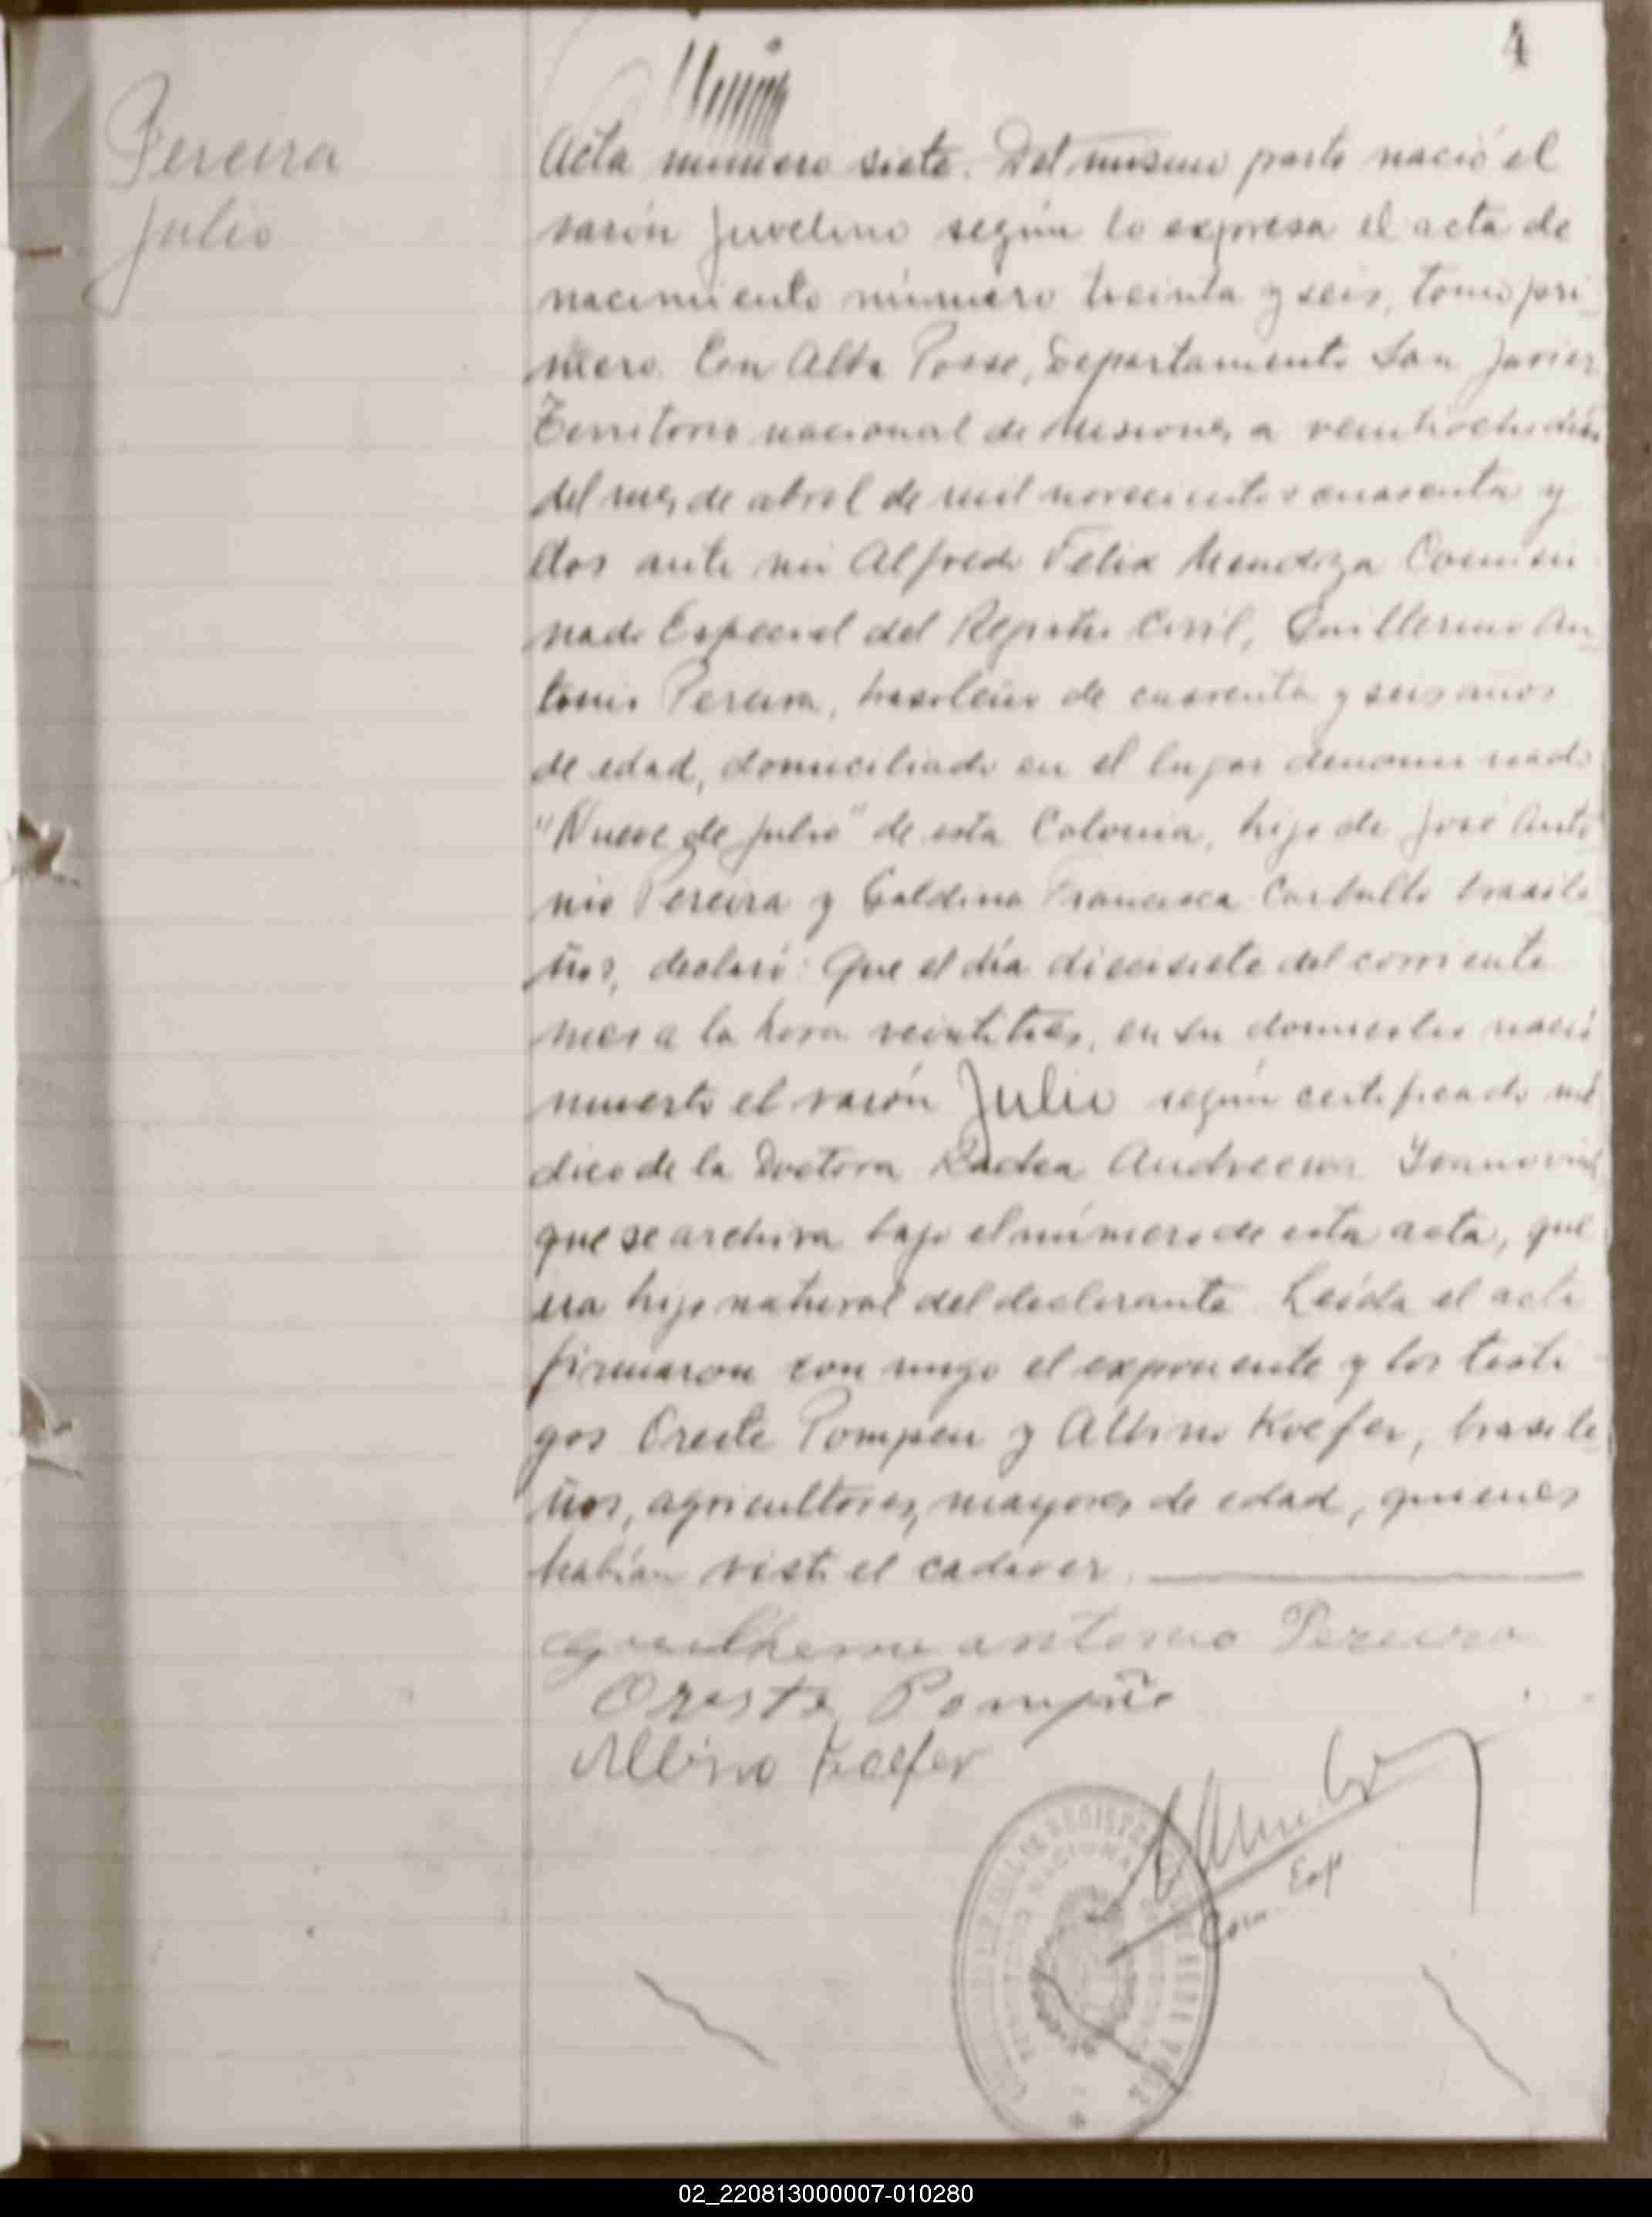 4
Pereira
Julio
Acta número siete. Del mismo parto nació el
varón Juvelino según lo expresa el acta de
nacimiento número treinta y seis, tomo pri
mero. En Alba Posse, Departamento San Javier
Territorio nacional de Misiones a veintiocho días
del mes de abril de mil novecientos cuarenta y
dos ante mi Alfredo Felix Mendoza Comisio
nado Especial del Registro Civil, Guillermo An
tonio Pereira, brasileño de cuarenta y seis años
de edad, domiciliado en el lugar denominado
"Nueve de Julio" de esta Colonia, hijo de José Anto
nio Pereira y Galdina Francisca Carballo brasile
ños, declaró: Que el día diecisiete del corriente
mes a la hora veintitrés, en su domicilio nació
muerto el varón Julio según certificado mé
dico de la Doctora Radea Andreewa
que se archiva bajo el número de esta acta, que
era hijo natural del declarante. Leída el acta
firmaron con migo el exponente y los testi
gos Oreste Pompeu y Albino Koefer, brasile
ños, agricultores, mayores de edad, quienes
habían visto el cadáver.
Guilherme antonio Pereira
Oreste
Albino Koefer
Com. Esp
02_220813000007-010280